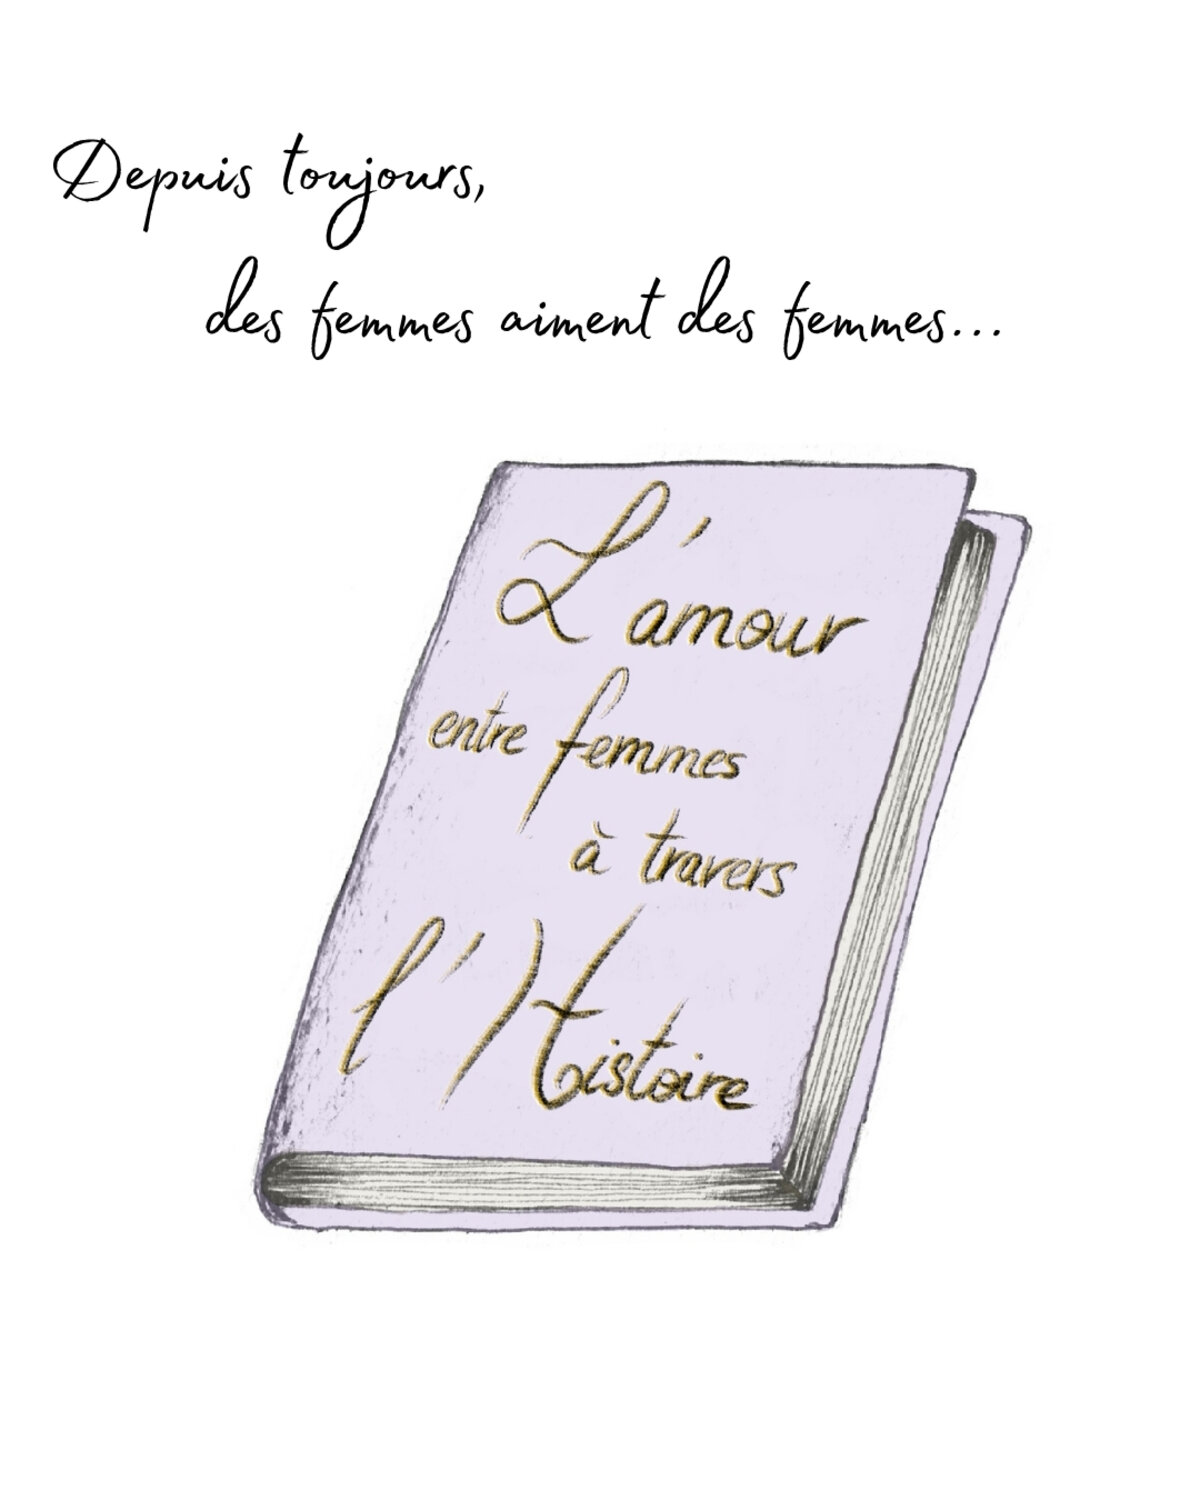 Depuis toujours,
des femmes aiment des femmes...
L'amour
entre femmes
à travers
l'Histoire